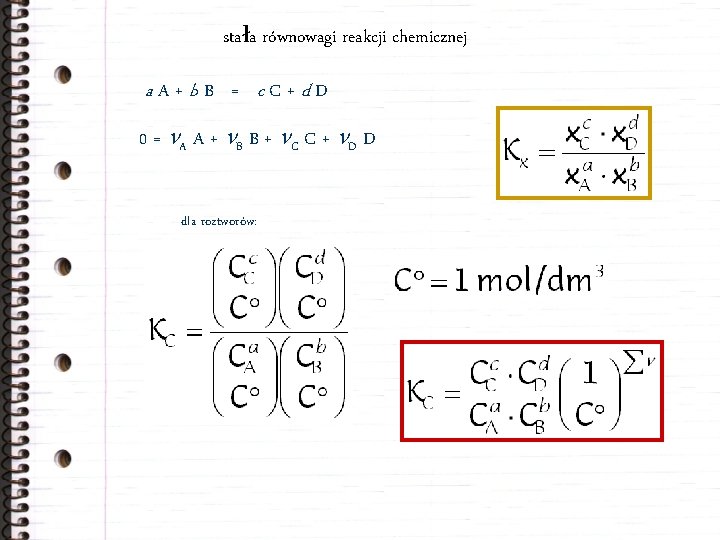 stała równowagi reakcji chemicznej
a A + b B = c C + d D
0 = νA A + νB B + νC C + νD D
Kx = (xC^c · xD^d) / (xA^a · xB^b)
dla roztworów:
KC = ((CC^c / C°)(CD^d / C°)) / ((CA^a / C°)(CB^b / C°))
C° = 1 mol/dm³
KC = (CC^c · CD^d) / (CA^a · CB^b) (1 / C°)^∑ν